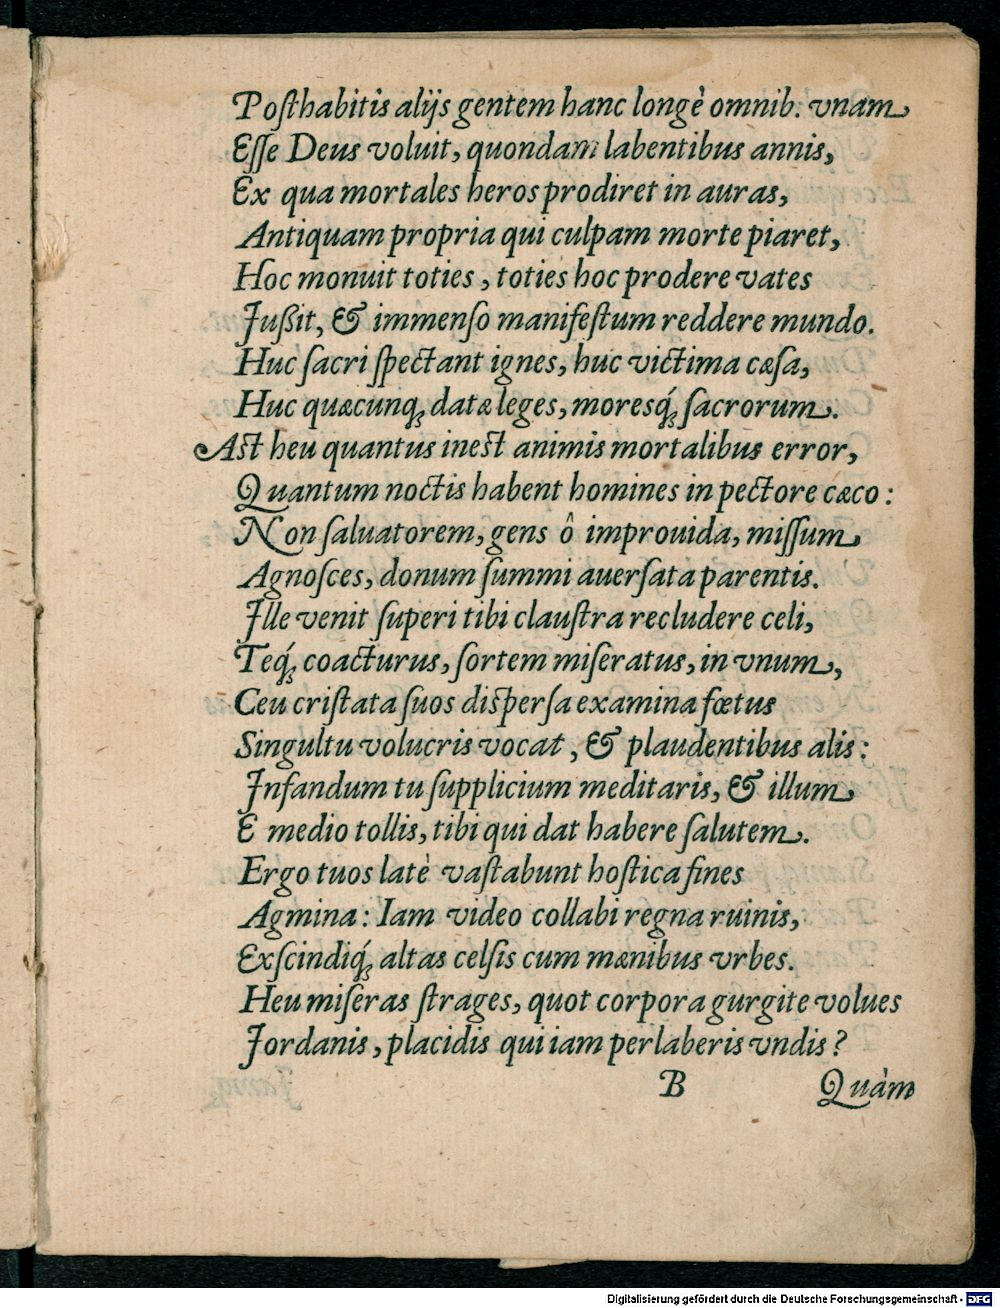 Posthabitis alijs gentem hanc longè omnib. vnam
Esse Deus voluit, quondam labentibus annis,
Ex qua mortales heros prodiret in auras,
Antiquam propria qui culpam morte piaret,
Hoc monuit toties, toties hoc prodere vates
Jußit, & immenso manifestum reddere mundo.
Huc sacri spectant ignes, huc victima cæsa,
Huc quæcunq; datæ leges, moresq́; sacrorum.
Ast heu quantus inest animis mortalibus error,
Quantum noctis habent homines in pectore cæco:
Non saluatorem, gens ô improuida, missum
Agnosces, donum summi auersata parentis.
Jlle venit superi tibi claustra recludere celi,
Teq́; coacturus, sortem miseratus, in vnum,
Ceu cristata suos dispersa examina fœtus
Singultu volucris vocat, & plaudentibus alis:
Jnfandum tu supplicium meditaris, & illum
E medio tollis, tibi qui dat habere salutem.
Ergo tuos latè vastabunt hostica fines
Agmina: Iam video collabi regna ruinis,
Exscindiq́; altas celsis cum mænibus vrbes.
Heu miseras strages, quot corpora gurgite volues
Jordanis, placidis qui iam perlaberis vndis?
B Quàm
Digitalisierung gefördert durch die Deutsche Forschungsgemeinschaft - DFG